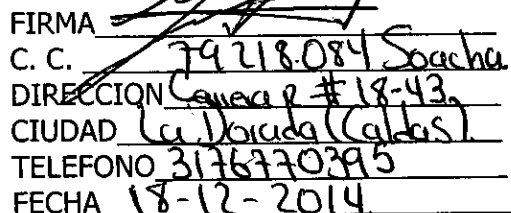 FIRMA
C. C. 79218.084 Soacha
DIRECCION Carrera 2 # 18-43
CIUDAD La Dorada (Caldas)
TELEFONO 3176770395
FECHA 18-12-2014